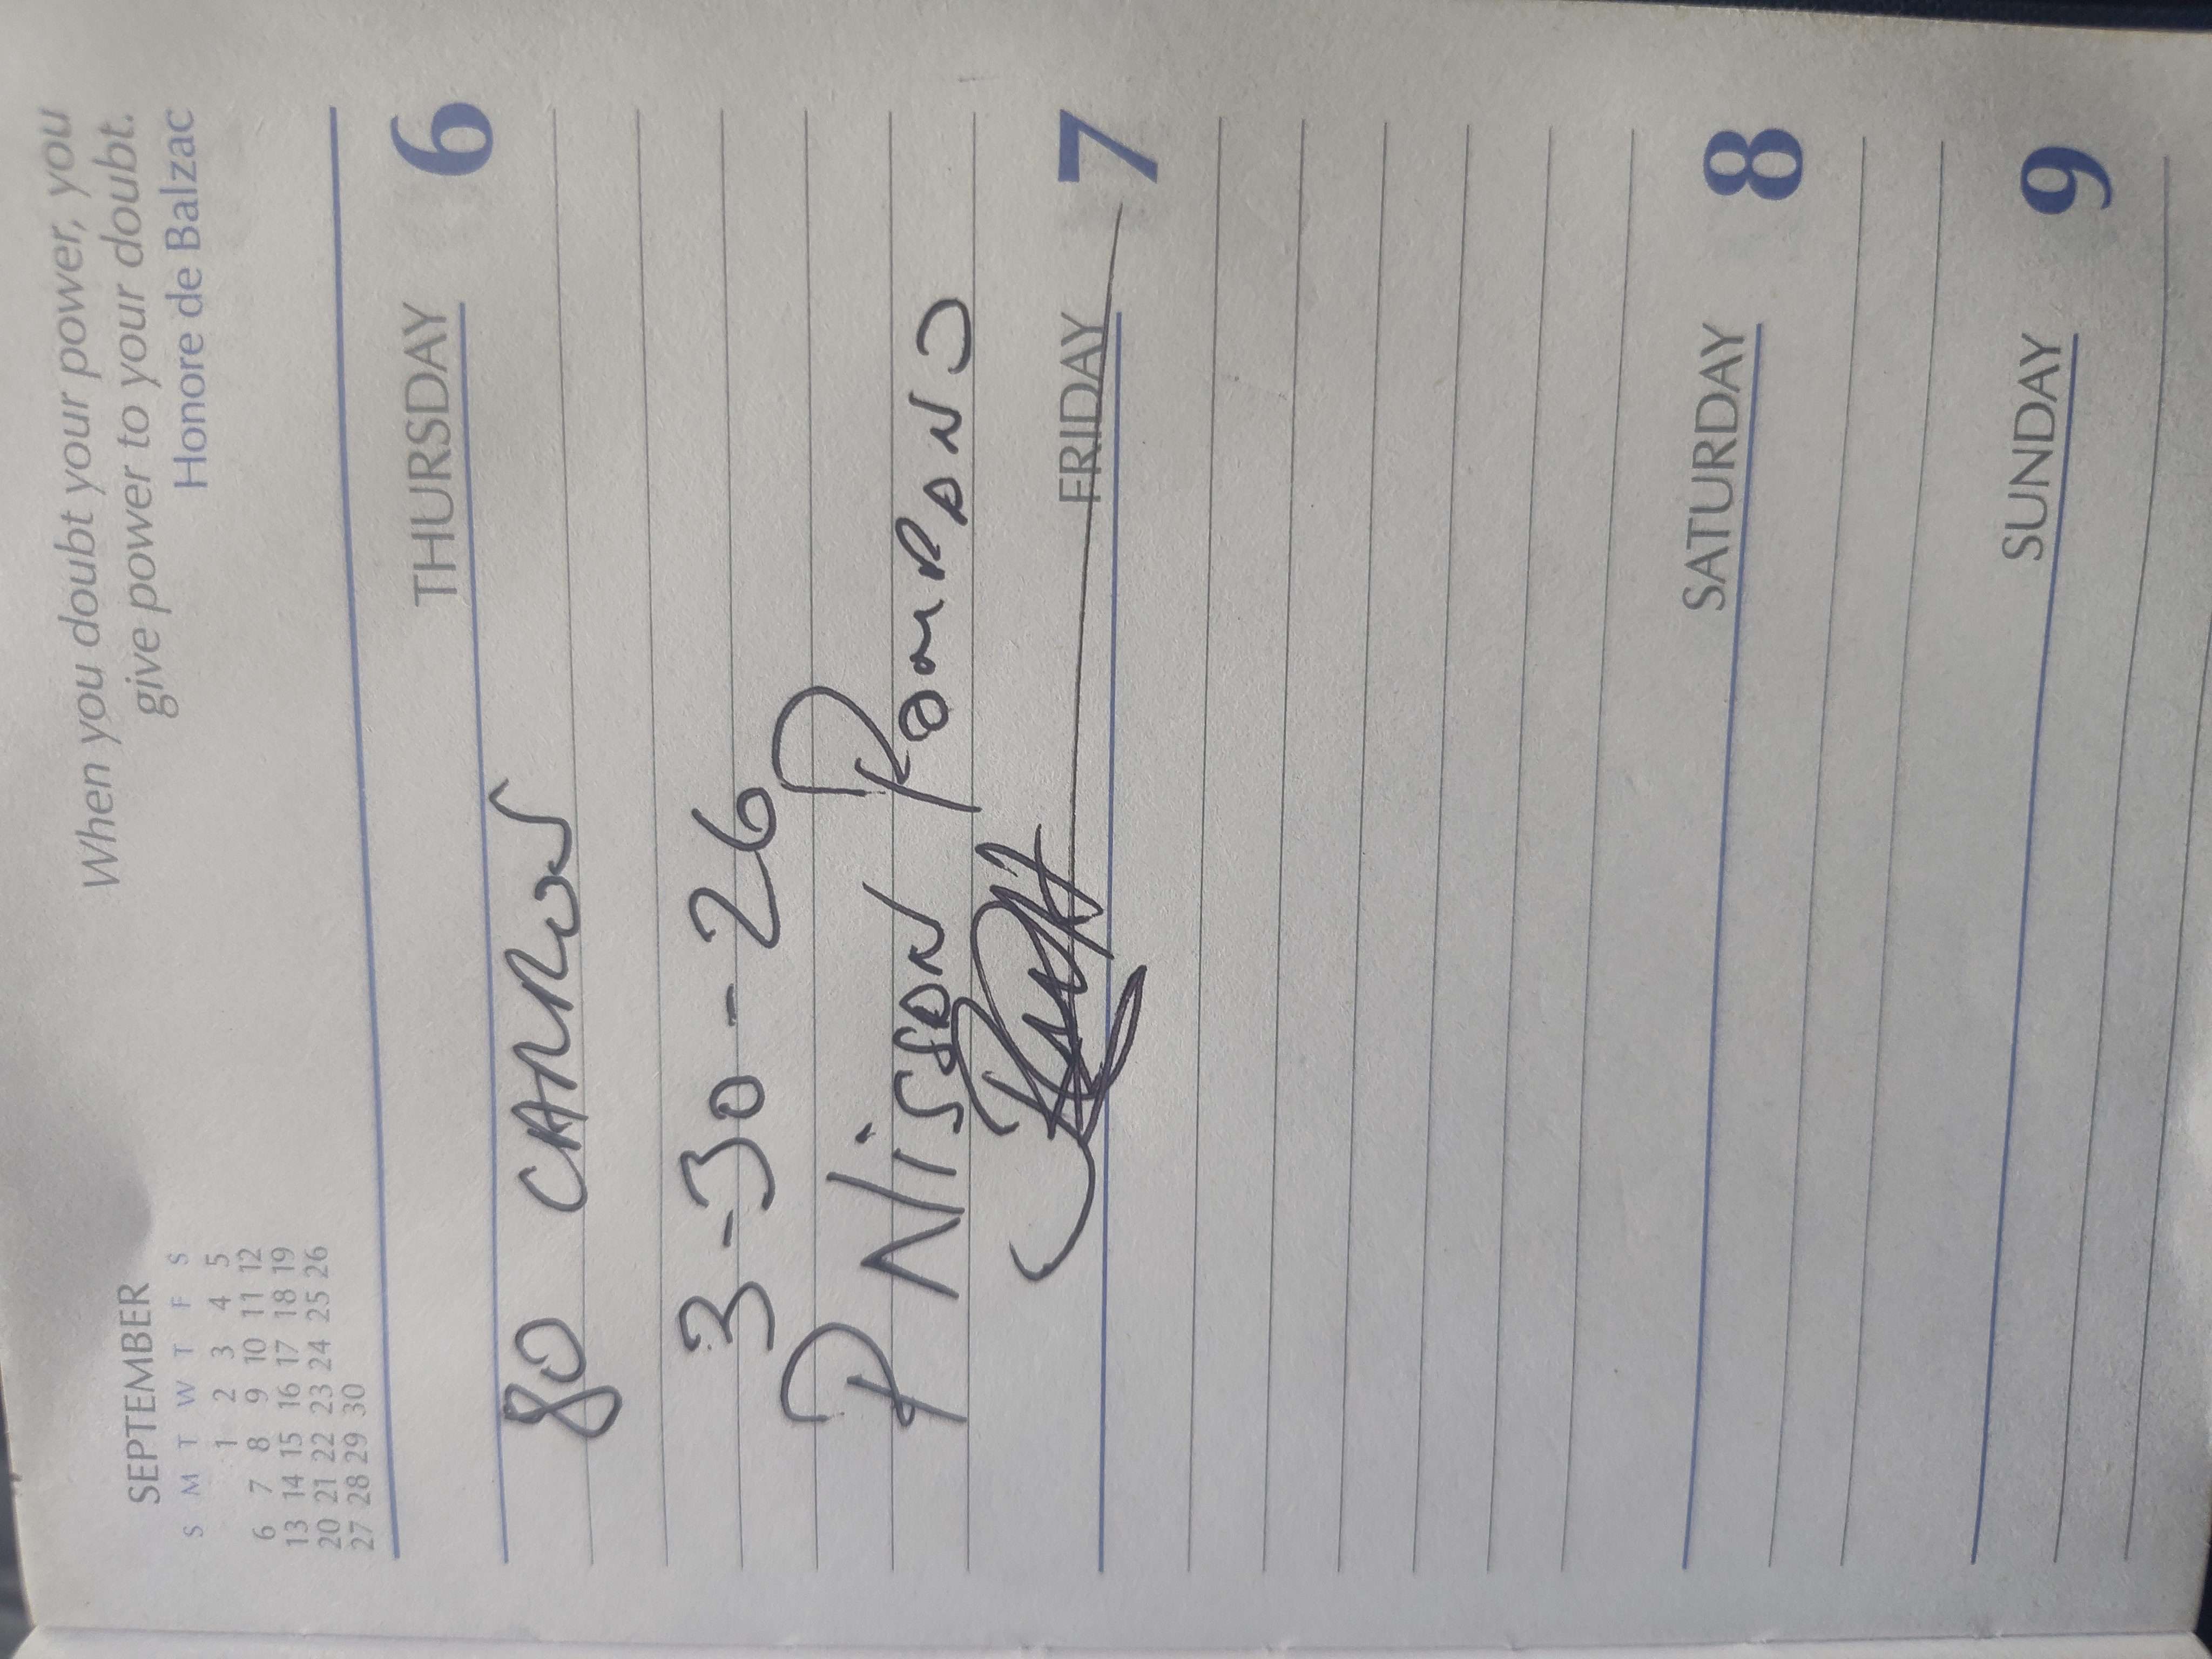 When you doubt your power, you
give power to your doubt.
Honore de Balzac
SEPTEMBER
S M T W T F S
1 2 3 4 5
6 7 8 9 10 11 12
13 14 15 16 17 18 19
20 21 22 23 24 25 26
27 28 29 30
THURSDAY 6
80 CARROS
3-30-26
P Nissan Pompano
FRIDAY 7
SATURDAY 8
SUNDAY 9